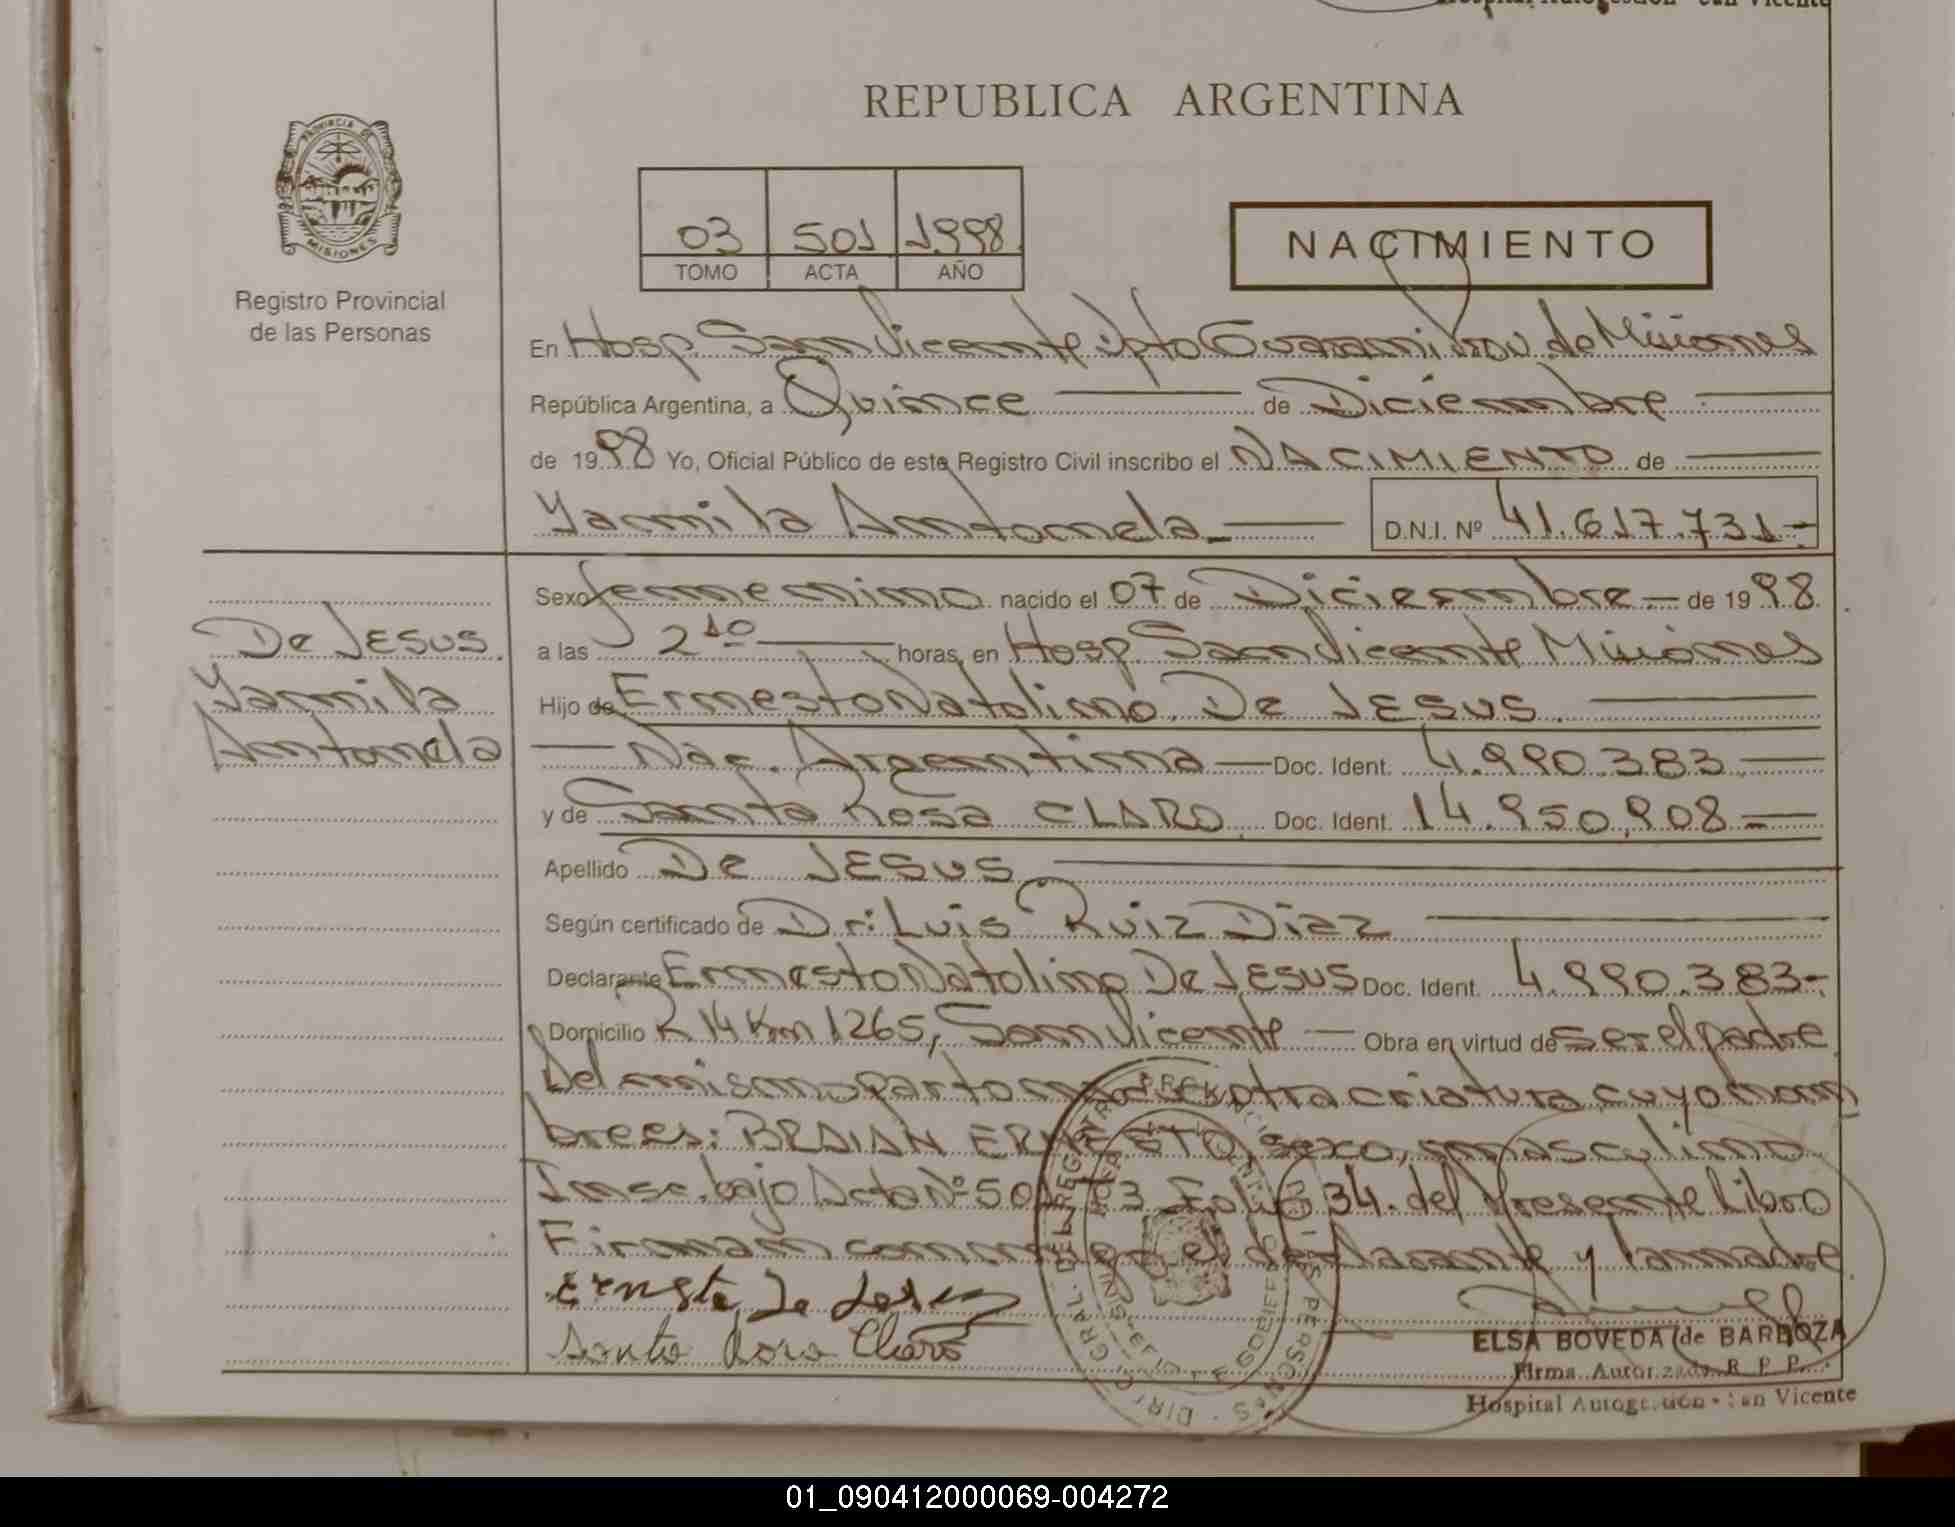 Hospital Autogestión San Vicente
REPUBLICA ARGENTINA
PROVINCIA DE MISIONES
Registro Provincial
de las Personas
03 501 1998
TOMO ACTA AÑO
NACIMIENTO
En Hosp. San Vicente Dpto Guarani, Prov. de Misiones
República Argentina, a Quince de Diciembre
de 1998 Yo, Oficial Público de este Registro Civil inscribo el NACIMIENTO de
Yamila Antonela D.N.I. Nº 41.617.731-
Sexo femenino nacido el 07 de Diciembre de 1998
a las 2 10 horas, en Hosp. San Vicente Misiones
Hijo de Ernesto Natolino De JESUS
Nac. Argentina Doc. Ident. 4.990.383
y de Santa Rosa CLARO Doc. Ident. 14.950.908
Apellido De JESUS
Según certificado de Dr: Luis Ruiz Diaz
Declarante Ernesto Natolino De JESUS Doc. Ident. 4.990.383-
Domicilio R 14 Km 1265, San Vicente Obra en virtud de ser el padre
Del mismo parto nació otra criatura, cuyo nom
bre es: BRAIAN ERNESTO, sexo, masculino
Insc. bajo Acta Nº 50 T 3 Folio 34. del Presente Libro
Firman conmigo el declarante y la madre
De JESUS
Yamila
Antonela
Santa Rosa Claro
ELSA BOVEDA de BARBOZA
Firma Autorizada R. P. P.
Hospital Autogestión - San Vicente
01_090412000069-004272